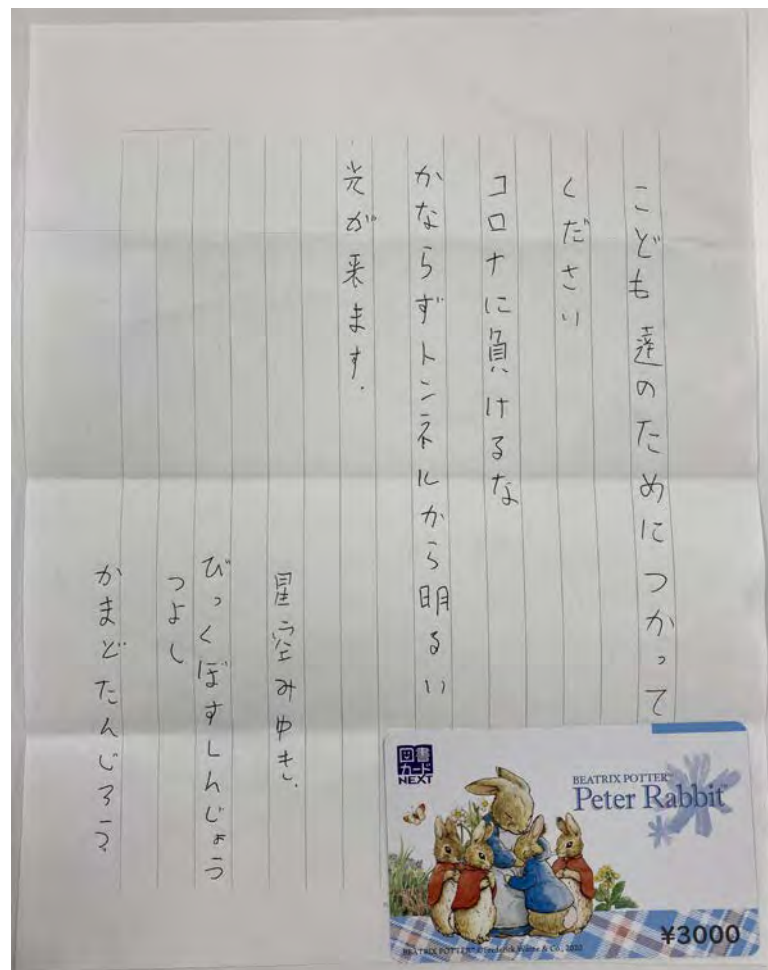 こども達のためにつかって
ください
コロナに負けるな
かならずトンネルから明るい
光が来ます.
星空みゆき.
びっくぼすしんじょう
つよし
かまどたんじろう.
図書
カード
NEXT
BEATRIX POTTER™
Peter Rabbit™
¥3000
BEATRIX POTTER™ © Frederick Warne & Co., 2020